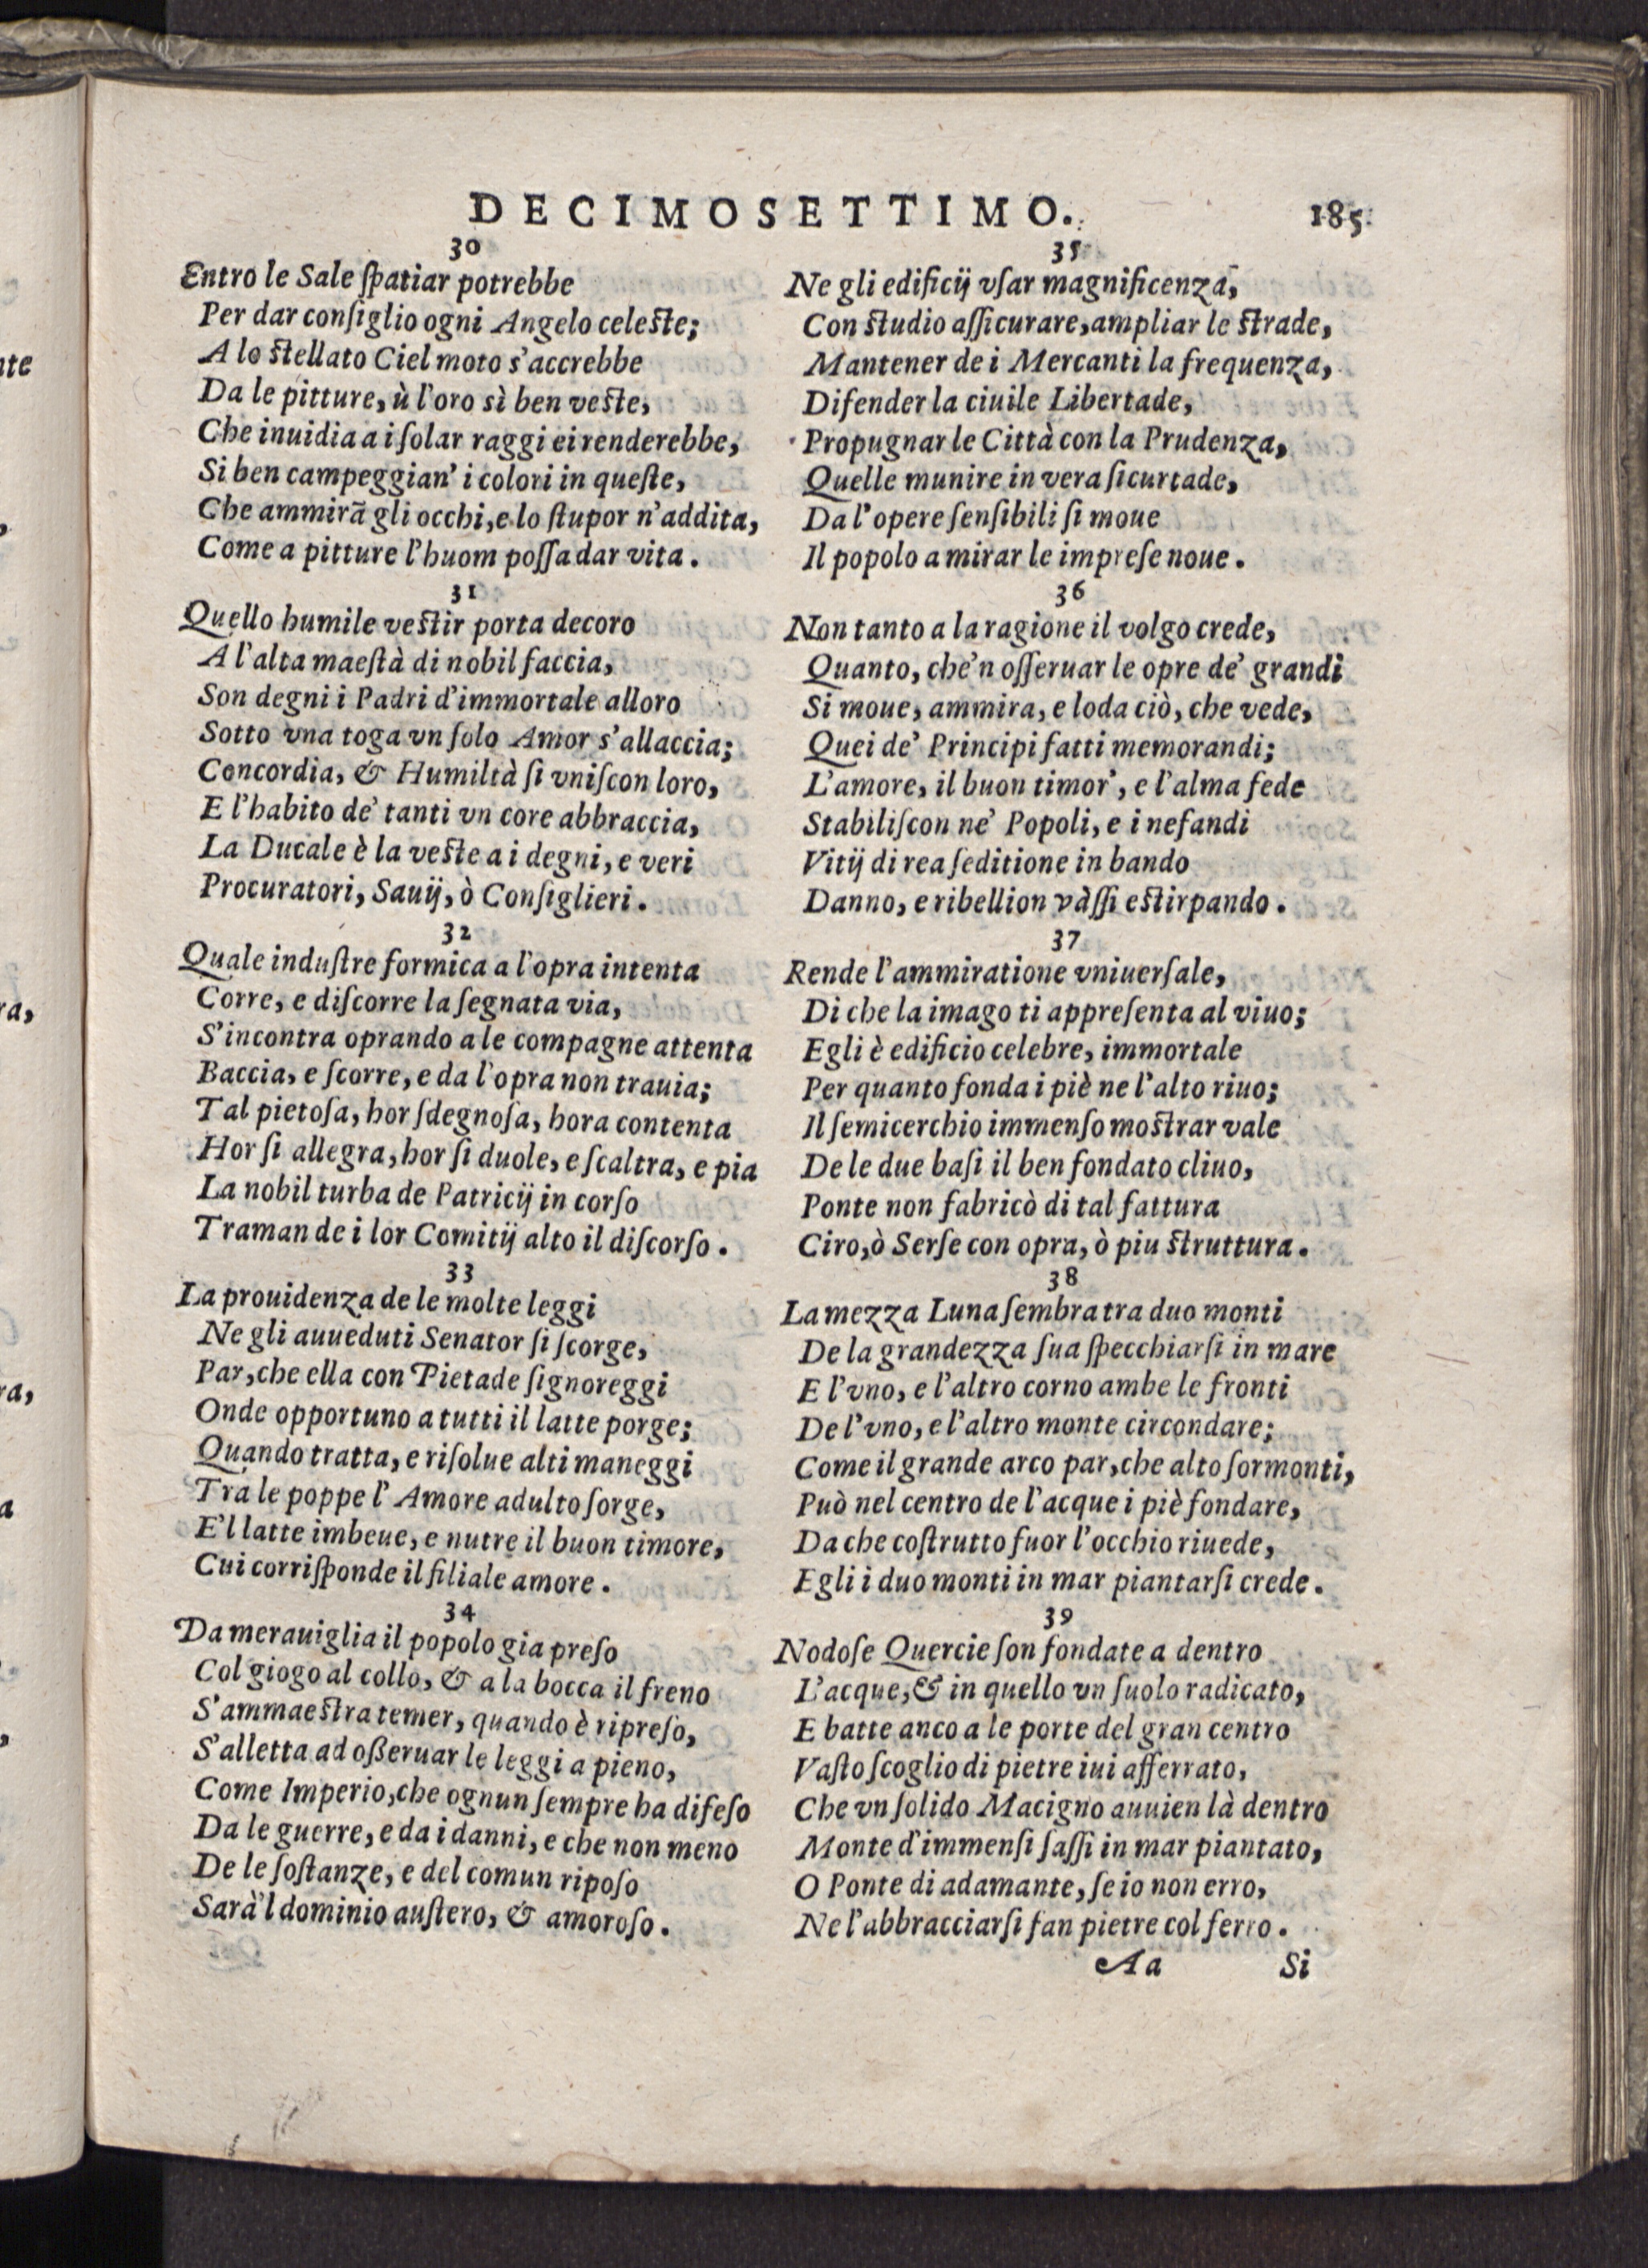 DECIMOSETTIMO. 185
30
Entro le Sale ſpatiar potrebbe
Per dar conſiglio ogni Angelo celeſte;
A lo ſtellato Ciel moto s'accrebbe
Da le pitture, ù l'oro sì ben veſte,
Che inuidia a i ſolar raggi ei renderebbe,
Si ben campeggian' i colori in queſte,
Che ammirā gli occhi, e lo ſtupor n'addita,
Come a pitture l'huom poſſa dar vita.
31
Quello humile veſtir porta decoro
A l'alta maeſtà di nobil faccia,
Son degni i Padri d'immortale alloro
Sotto vna toga vn ſolo Amor s'allaccia;
Concordia, & Humiltà ſi vniſcon loro,
E l'habito de' tanti vn core abbraccia,
La Ducale è la veſte a i degni, e veri
Procuratori, Sauij, ò Conſiglieri.
32
Quale induſtre formica a l'opra intenta
Corre, e diſcorre la ſegnata via,
S'incontra oprando a le compagne attenta
Baccia, e ſcorre, e da l'opra non trauia;
Tal pietoſa, hor ſdegnoſa, hora contenta
Hor ſi allegra, hor ſi duole, e ſcaltra, e pia
La nobil turba de Patricij in corſo
Traman de i lor Comitij alto il diſcorſo.
33
La prouidenza de le molte leggi
Ne gli auueduti Senator ſi ſcorge,
Par, che ella con Pietade ſignoreggi
Onde opportuno a tutti il latte porge;
Quando tratta, e riſolue alti maneggi
Tra le poppe l'Amore adulto ſorge,
E'l latte imbeue, e nutre il buon timore,
Cui corriſponde il filiale amore.
34
Da merauiglia il popolo gia preſo
Col giogo al collo, & a la bocca il freno
S'ammaeſtra temer, quando è ripreſo,
S'alletta ad oßeruar le leggi a pieno,
Come Imperio, che ognun ſempre ha difeſo
Da le guerre, e da i danni, e che non meno
De le ſoſtanze, e del comun ripoſo
Sarà'l dominio auſtero, & amoroſo.
35
Ne gli edificij vſar magnificenza,
Con ſtudio aſſicurare, ampliar le ſtrade,
Mantener de i Mercanti la frequenza,
Difender la ciuile Libertade,
Propugnar le Città con la Prudenza,
Quelle munire in vera ſicurtade,
Da l'opere ſenſibili ſi moue
Il popolo a mirar le impreſe noue.
36
Non tanto a la ragione il volgo crede,
Quanto, che'n oſſeruar le opre de' grandi
Si moue, ammira, e loda ciò, che vede,
Quei de' Principi fatti memorandi;
L'amore, il buon timor', e l'alma fede
Stabiliſcon ne' Popoli, e i nefandi
Vitij di rea ſeditione in bando
Danno, e ribellion vàſſi eſtirpando.
37
Rende l'ammiratione vniuerſale,
Di che la imago ti appreſenta al viuo;
Egli è edificio celebre, immortale
Per quanto fonda i piè ne l'alto riuo;
Il ſemicerchio immenſo moſtrar vale
De le due baſi il ben fondato cliuo,
Ponte non fabricò di tal fattura
Ciro, ò Serſe con opra, ò piu ſtruttura.
38
La mezza Luna ſembra tra duo monti
De la grandezza ſua ſpecchiarſi in mare
E l'vno, e l'altro corno ambe le fronti
De l'vno, e l'altro monte circondare;
Come il grande arco par, che alto ſormonti,
Può nel centro de l'acque i piè fondare,
Da che coſtrutto fuor l'occhio riuede,
Egli i duo monti in mar piantarſi crede.
39
Nodoſe Quercie ſon fondate a dentro
L'acque, & in quello vn ſuolo radicato,
E batte anco a le porte del gran centro
Vaſto ſcoglio di pietre iui afferrato,
Che vn ſolido Macigno auuien là dentro
Monte d'immenſi ſaſſi in mar piantato,
O Ponte di adamante, ſe io non erro,
Ne l'abbracciarſi fan pietre col ferro.
Aa Si